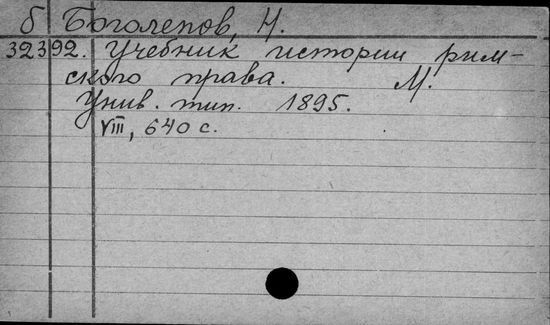 б Боголепов, Н.
32392. Учебник истории рим-
ского права. М.
Унив. тип. 1895.
VIII, 640 с.